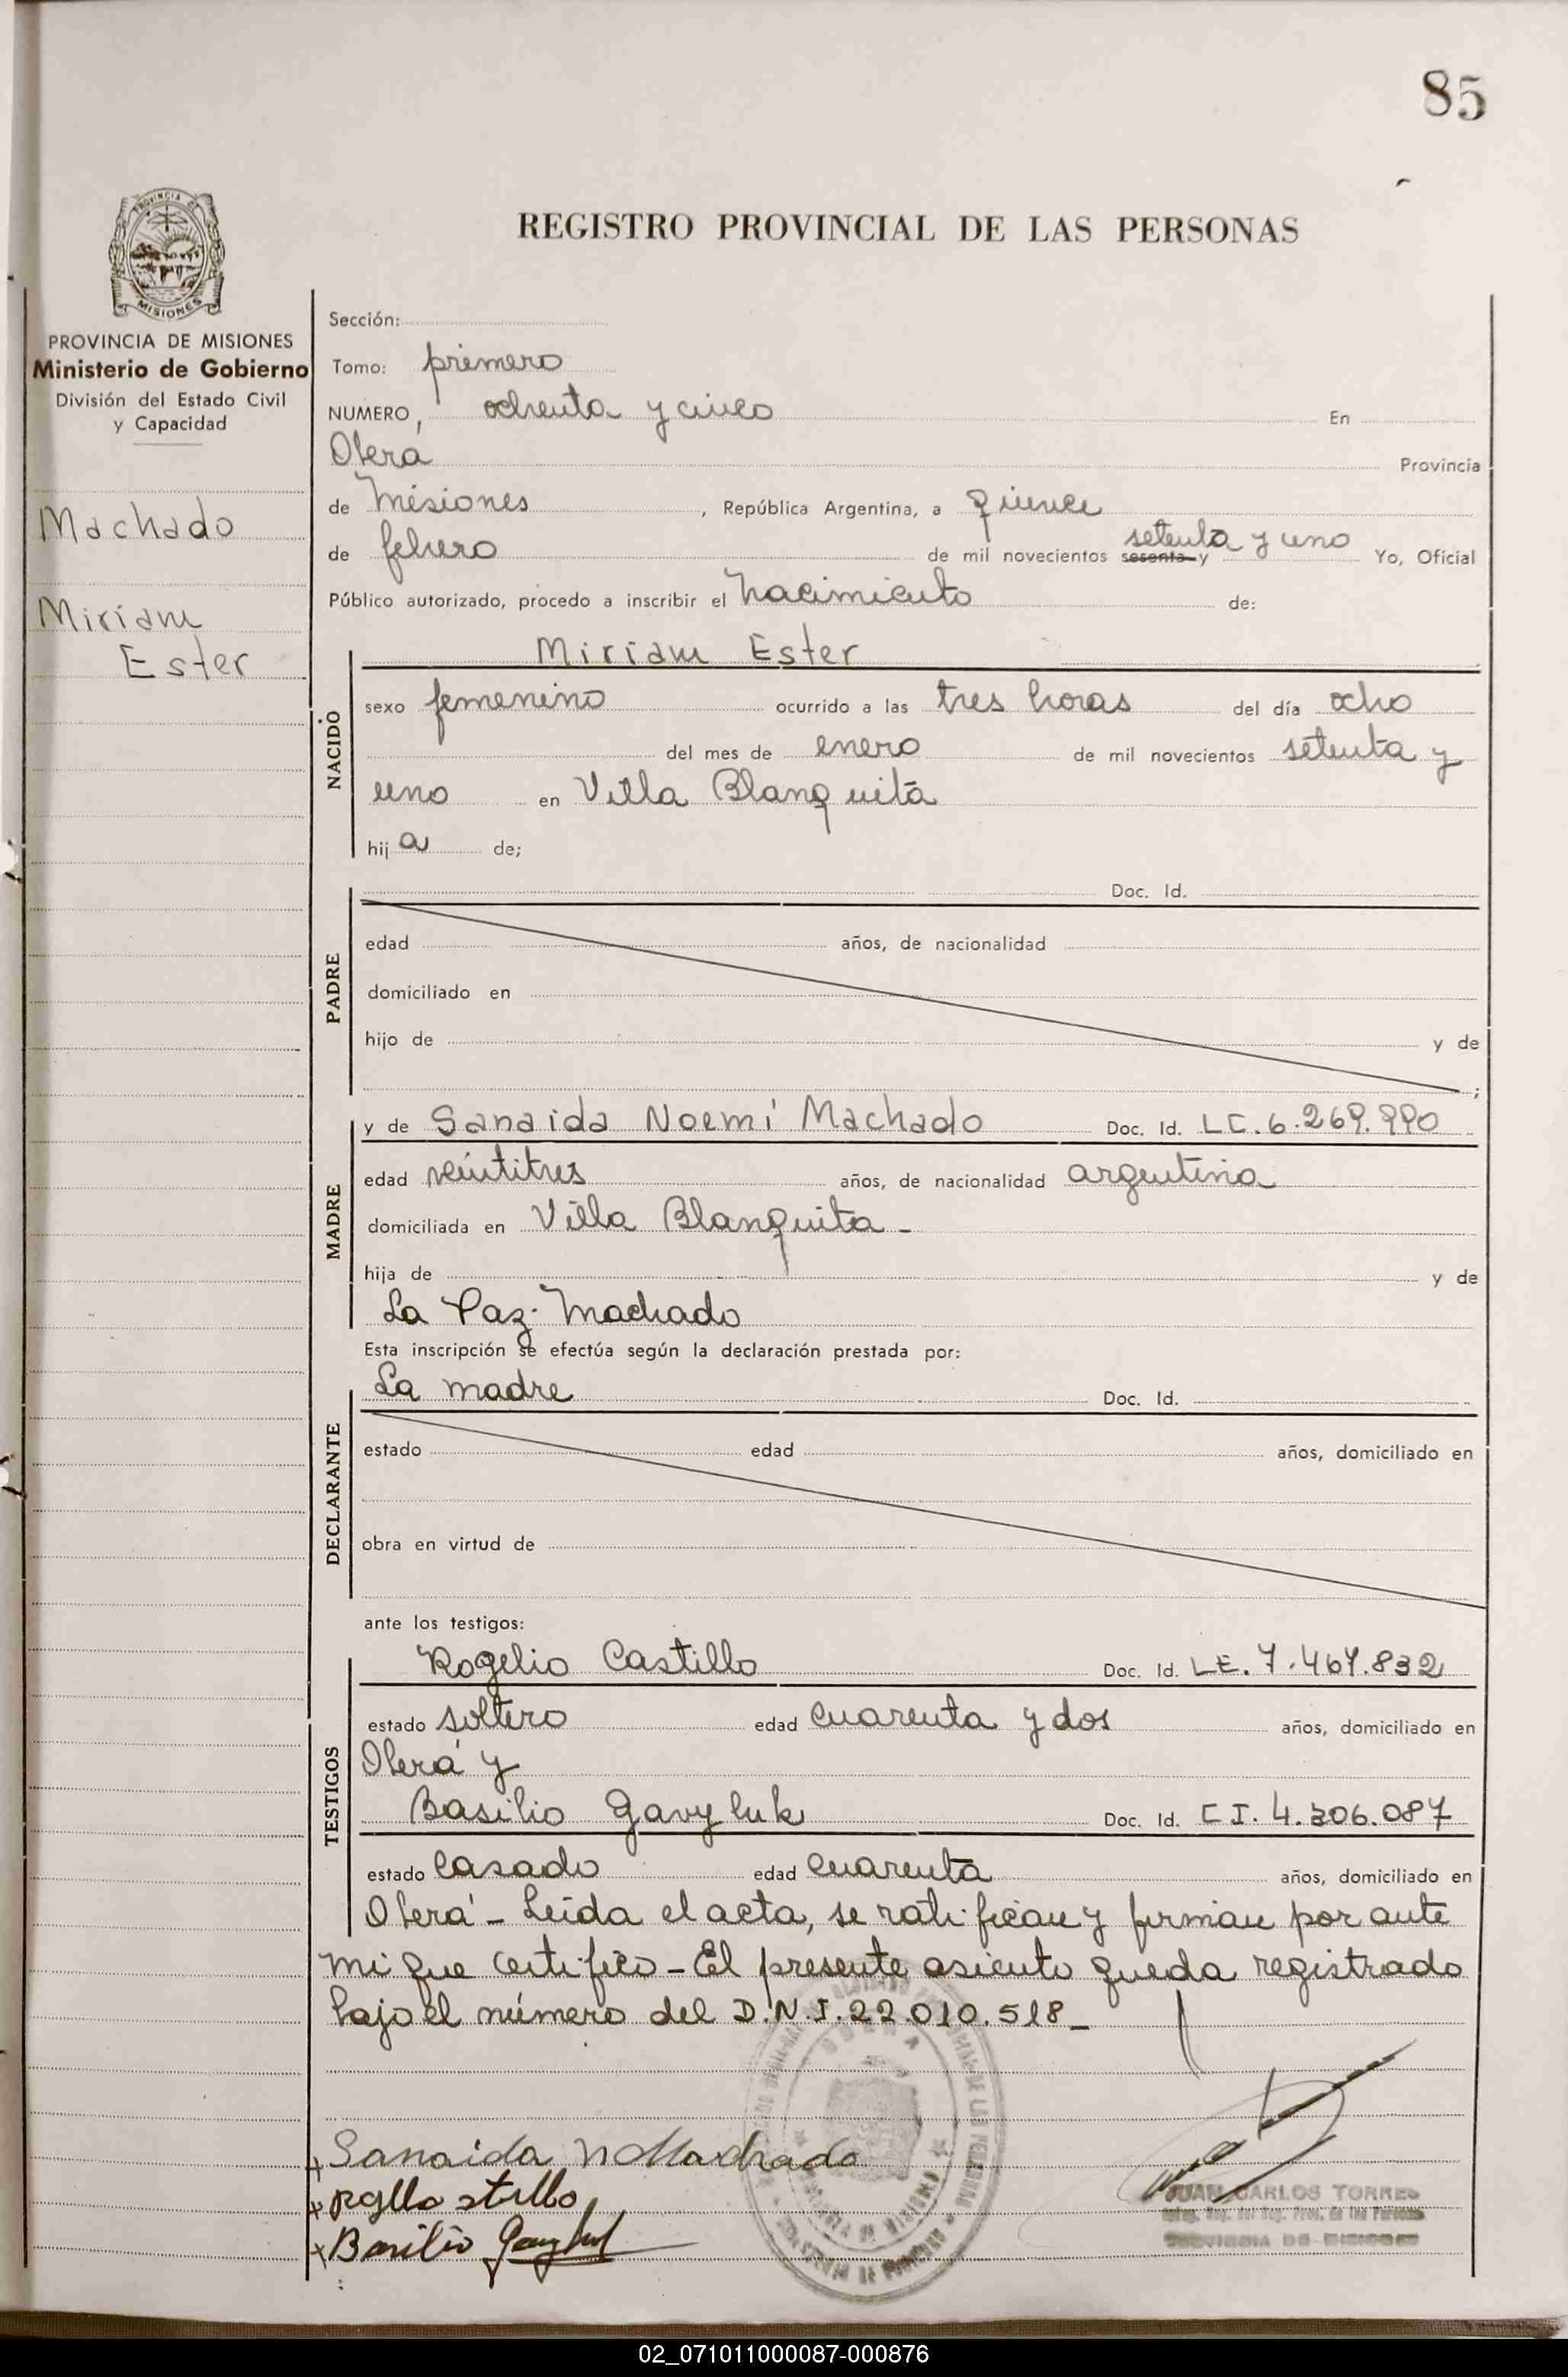 85
REGISTRO PROVINCIAL DE LAS PERSONAS
PROVINCIA DE
MISIONES
PROVINCIA DE MISIONES
Ministerio de Gobierno
División del Estado Civil
y Capacidad
Machado
Miriam
Ester
Sección:
Tomo: primero
NUMERO, ochenta y cinco En
Oberá Provincia
de Misiones, República Argentina, a quince
de febrero de mil novecientos sesenta y setenta y uno Yo, Oficial
Público autorizado, procedo a inscribir el nacimiento de:
NACIDO
Miriam Ester
sexo femenino ocurrido a las tres horas del día ocho
del mes de enero de mil novecientos setenta y
uno en Villa Blanquita
hija de;
PADRE
Doc. Id.
edad años, de nacionalidad
domiciliado en
hijo de y de
;
MADRE
y de Sanaida Noemí Machado Doc. Id. LC. 6.269.990
edad veintitres años, de nacionalidad argentina
domiciliada en Villa Blanquita -
hija de y de
La Paz Machado
Esta inscripción se efectúa según la declaración prestada por:
DECLARANTE
La madre Doc. Id.
estado edad años, domiciliado en
obra en virtud de
ante los testigos:
TESTIGOS
Rogelio Castillo Doc. Id. LE. 7.467.832
estado soltero edad cuarenta y dos años, domiciliado en
Oberá y
Basilio Gavyluk Doc. Id. C I. 4.306.087
estado casado edad cuarenta años, domiciliado en
Oberá - Leida el acta, se ratifican y firman por ante
mi que certifico - El presente asiento queda registrado
bajo el número del D.N.I. 22.010.518 -
Sanaida N Machado
Basilio Gavyluk
JUAN CARLOS TORRES
PROVINCIA DE MISIONES
02_071011000087-000876